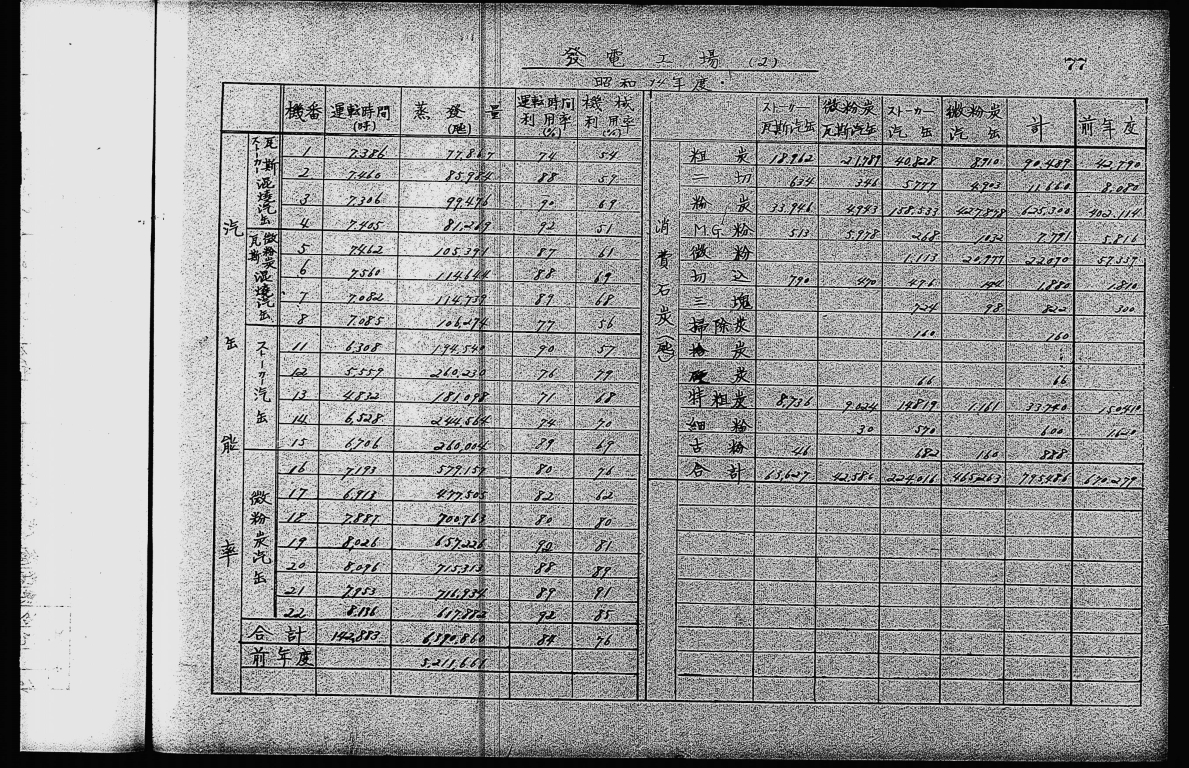 發電工場(2)
77
昭和14年度
機番 運転時間(時) 蒸發量(瓲) 運転時間利用率(%) 機械利用率(%)
汽缶能率
瓦斯ストーカー混焼汽缶
1 7,386 77,867 74 54
2 7,460 85,984 88 57
3 7,306 99,476 90 69
4 7,405 81,269 92 51
微粉炭瓦斯混焼汽缶
5 7,462 105,391 87 61
6 7,560 114,644 88 69
7 7,082 114,739 89 68
8 7,085 106,274 77 56
ストーカー汽缶
11 6,308 194,540 90 57
12 5,559 260,230 76 79
13 4,832 181,098 71 68
14 6,528 244,564 74 70
15 6,706 260,004 89 69
微粉炭汽缶
16 7,193 579,157 80
17 6,913 477,505 82 62
18 7,887 700,763 80 80
19 8,026 657,226 90 81
20 8,096 715,313 88 89
21 7,953 716,934 89 91
22 8,136 92 85
合計 142,883 6,390,860 84 76
前年度 5,211,661
ストーカー瓦斯汽缶 微粉炭瓦斯汽缶 ストーカー汽缶 微粉炭汽缶 計 前年度
消費石炭(瓲)
粗炭 18,962 21,789 40,828 8,910 90,489 42,790
二切 634 346 5,777 4,903 11,660 8,080
粉炭 33,946 4,943 158,533 427,878 625,300 402,114
M.G.粉 513 5,978 268 1,032 7,791 5,816
微粉 1,113 20,977 22,090 57,337
切込 790 470 476 144 1,880 1,810
三塊 724 98 822 300
掃除炭 160 160
炭
炭 66 66
特粗炭 8,736 9,024 14,819 1,161 33,740 150,410
細粉 30 570 600
古粉 46 682 160 888
合計 63,627 42,580 224,016 465,263 795,486 670,279